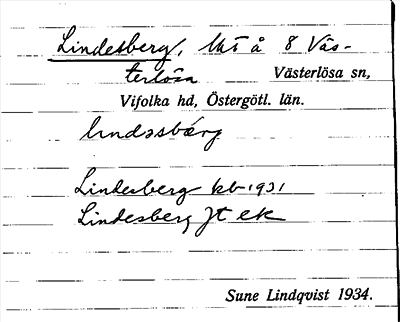 Lindesberg, Uts å 8 Väs-
terlösa Västerlösa sn,
Vifolka hd, Östergötl. län.
lındəsbærg
Lindesberg kb 1931
Lindesberg Jt ek
Sune Lindqvist 1934.